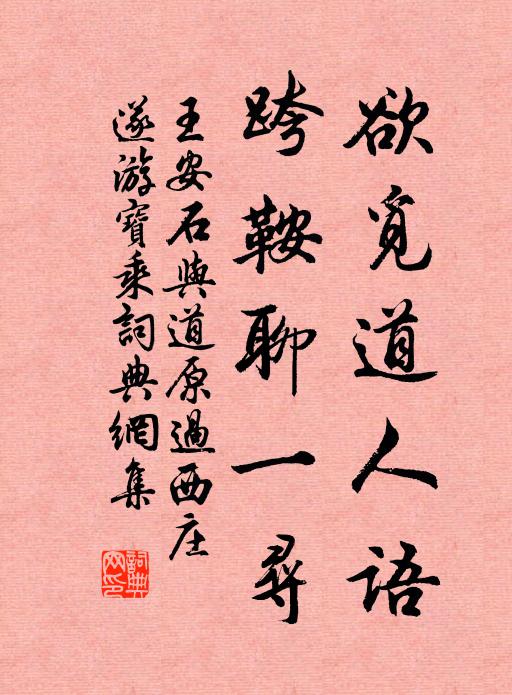 欲覓道人語
跨鞍聊一尋
王安石與道原過西庄
遂游寶乘詞典網集
詞典
网印